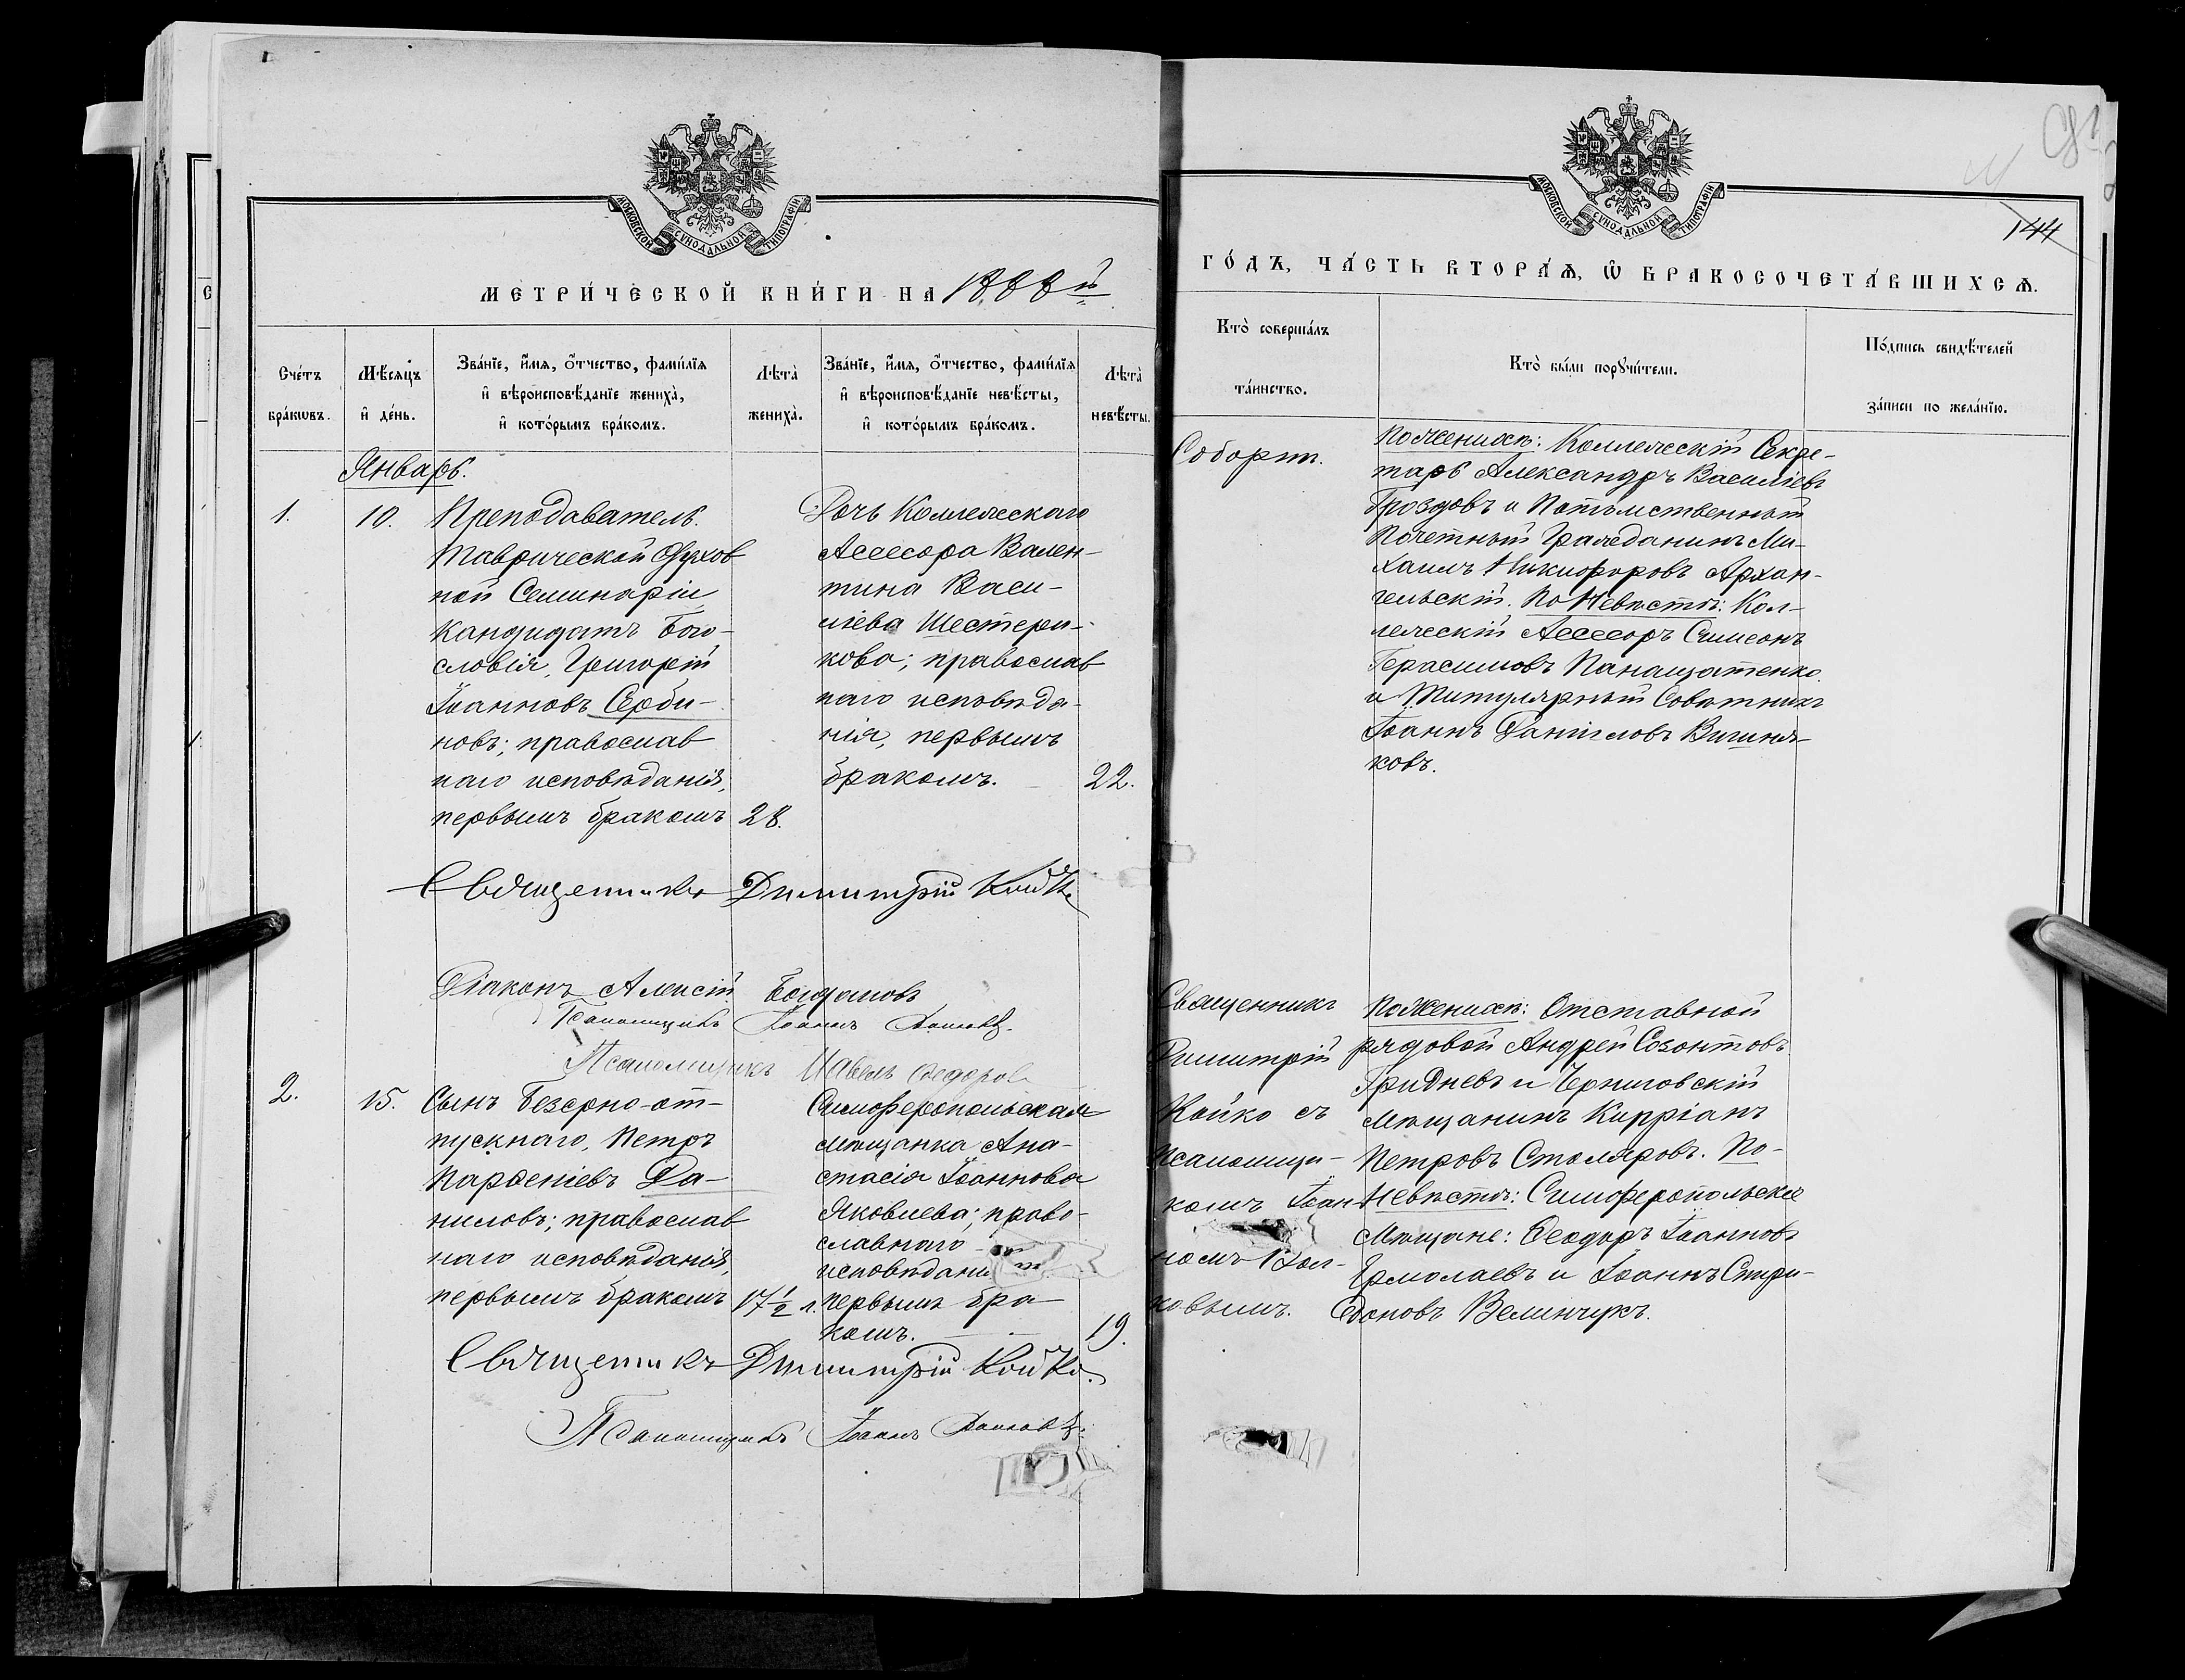 МОСКОВСКОЙ СѴНОДАЛЬНОЙ ТИПОГРАФІИ
МЕТРИ́ЧЕСКОЙ КНИ́ГИ НА 1888й
Сче́тъ бра́кѡвъ.
Мѣ́сяцъ и҆ де́нь.
Зва́нїе, и҆́мѧ, ѻ҆́тчество, фами́лїѧ
и҆ вѣроисповѣ́данїе жениха̀,
и҆ кото́рымъ бра́комъ.
Лѣта̀ жениха̀.
Зва́нїе, и҆́мѧ, ѻ҆́тчество, фами́лїѧ
и҆ вѣроисповѣ́данїе невѣ́сты,
и҆ кото́рымъ бра́комъ.
Лѣта̀ невѣ́сты.
Январь.
1.
10.
Преподаватель
Таврической Духов
ной Семинаріи
Кандидатъ Бого-
словія, Григорій
Іоанновъ Серби-
новъ; православ
наго исповѣданія,
первымъ бракомъ
28.
Дочь Коллежскаго
Ассесора Вален-
тина Васи-
ліева Шестери-
кова; православ
наго исповѣда-
нія, первымъ
бракомъ.
22.
Священникъ Димитрій Койко
Діаконъ Алексій Богдановъ
Псаломщикъ Іоаннъ
Псаломщикъ Павелъ Ѳедоров
2.
15.
Сынъ безсрочно-от-
пускнаго, Петръ
Парѳеніевъ Да-
ниловъ; православ
наго исповѣданія,
первымъ бракомъ
17 1/2 л.
Симферопольская
мѣщанка Ана-
стасія Іоаннова
Яковлева; право-
славнаго
исповѣдані
первымъ бра
комъ.
19.
Священникъ Димитрій Койко.
Псаломщикъ Іоаннъ
МОСКОВСКОЙ СѴНОДАЛЬНОЙ ТИПОГРАФІИ
144
ГО́ДЪ, ЧА́СТЬ ВТОРА́Ѧ, Ѡ҆ БРАКОСОЧЕТА́ВШИХСѦ.
Кто̀ соверша́лъ
та́инство.
Кто̀ бы́ли порꙋчи́тели.
По́дпись свидѣ́телей
за́писи по жела́нїю.
Соборнѣ.
По женихѣ: Коллежскій Секре-
тарь Александръ Василіевъ
Гроздовъ и Потомственный
Почетный Гражданинъ Ми-
хаилъ Никифоровъ Архан-
гельскій. По Невѣстѣ: Кол-
лежскій Ассесоръ Симеонъ
Герасимовъ Панащатенко
и Титулярный Совѣтникъ
Іоаннъ Даніиловъ Вишня-
ковъ.
Священникъ
Димитрій
Койко съ
псаломщи-
комъ Іоан
номъ
ковымъ.
По Женихѣ: Отставной
рядовой Андрей Созонтовъ
Гридневъ и Черниговскій
мѣщанинъ Кипріанъ
Петровъ Столяровъ. По-
Невѣстѣ: Симферопольскіе
Мѣщане: Ѳеодоръ Іоанновъ
Ермолаевъ и Іоаннъ Спири-
доновъ Величукъ.